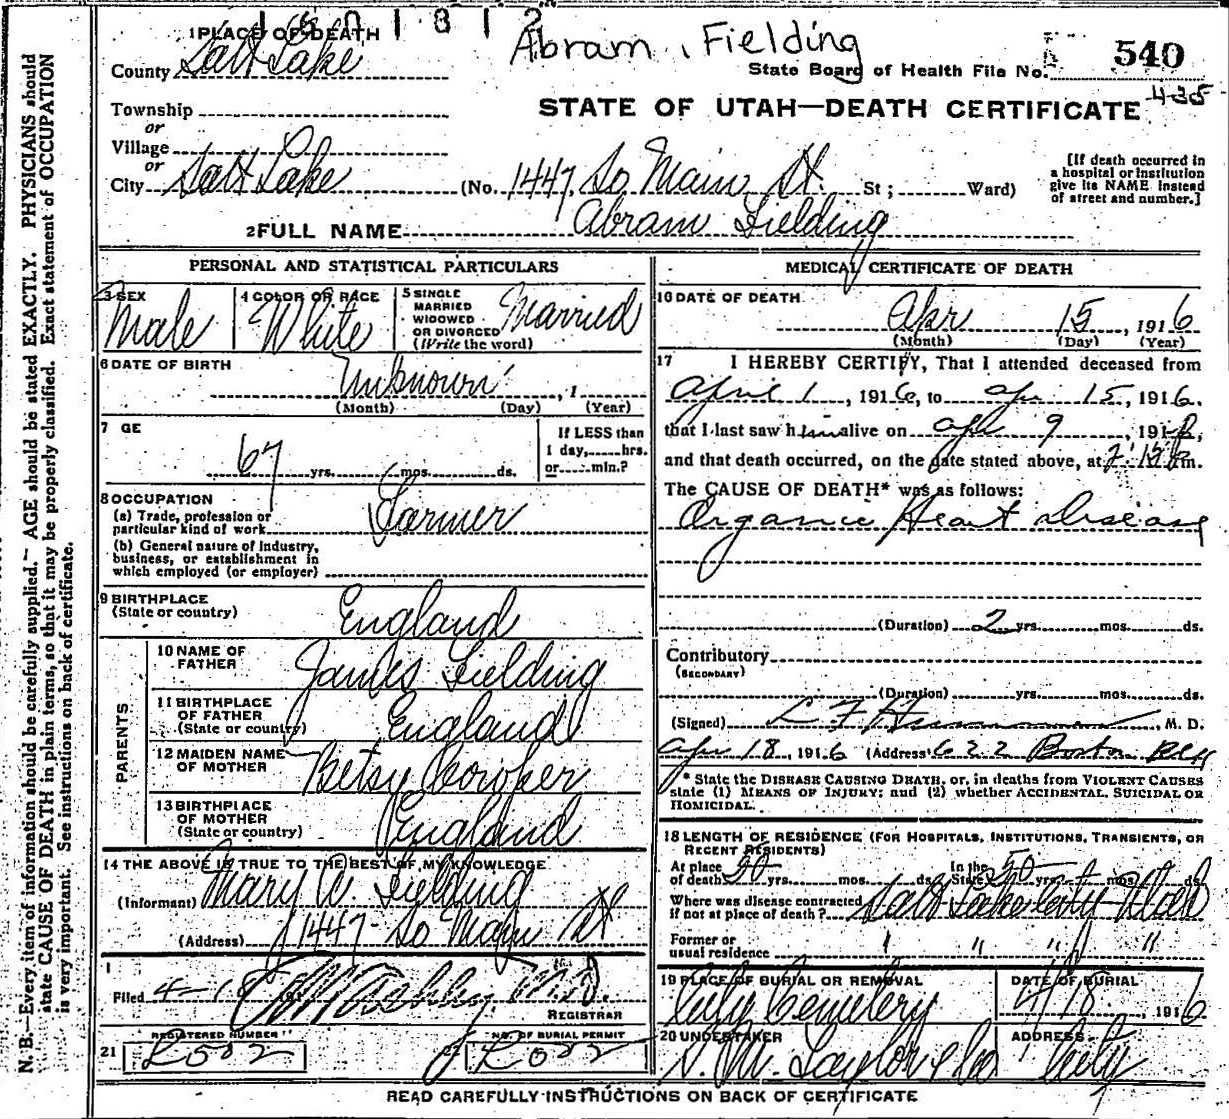 1 PLACE OF DEATH
1 8 1 2
Abram Fielding
County Salt Lake
State Board of Health File No. 540
435
Township
or
Village
or
City Salt Lake (No. 1447 So Main St. St; Ward)
STATE OF UTAH—DEATH CERTIFICATE
[If death occurred in
a hospital or institution
give its NAME instead
of street and number.]
2 FULL NAME Abram Fielding
PERSONAL AND STATISTICAL PARTICULARS
3 SEX
Male
4 COLOR OR RACE
White
5 SINGLE
MARRIED
WIDOWED
OR DIVORCED
(Write the word)
Married
6 DATE OF BIRTH
Unknown , 1
(Month) (Day) (Year)
7 GE
67 yrs. mos. ds.
If LESS than
1 day, hrs.
or min.?
8 OCCUPATION
(a) Trade, profession or
particular kind of work Farmer
(b) General nature of industry,
business, or establishment in
which employed (or employer)
9 BIRTHPLACE
(State or country) England
PARENTS
10 NAME OF
FATHER James Fielding
11 BIRTHPLACE
OF FATHER
(State or country) England
12 MAIDEN NAME
OF MOTHER Betsy
13 BIRTHPLACE
OF MOTHER
(State or country) England
14 THE ABOVE IS TRUE TO THE BEST OF MY KNOWLEDGE
(Informant) Mary A. Fielding
(Address) 1447 So Main St
Filed 4-18 191 M.D.
REGISTRAR
REGISTERED NUMBER
21
NO. OF BURIAL PERMIT
22
MEDICAL CERTIFICATE OF DEATH
16 DATE OF DEATH
Apr 15, 1916
(Month) (Day) (Year)
17 I HEREBY CERTIFY, That I attended deceased from
April 1, 1916, to Apr 15, 1916.
that I last saw him alive on Apr 9, 191
and that death occurred, on the date stated above, at m.
The CAUSE OF DEATH* was as follows:
Organic Heart Disease
(Duration) 2 yrs. mos. ds.
Contributory
(SECONDARY)
(Duration) yrs. mos. ds.
(Signed) L F , M. D.
Apr 18, 1916 (Address) 622 Boston Blk
* State the DISEASE CAUSING DEATH, or, in deaths from VIOLENT CAUSES
state (1) MEANS OF INJURY; and (2) whether ACCIDENTAL, SUICIDAL OR
HOMICIDAL.
18 LENGTH OF RESIDENCE (FOR HOSPITALS, INSTITUTIONS, TRANSIENTS, OR
RECENT RESIDENTS)
At place
of death yrs. mos. ds.
In the
State 50 yrs. mos. ds.
Where was disease contracted
if not at place of death? Salt Lake City Utah
Former or
usual residence " " "
19 PLACE OF BURIAL OR REMOVAL
City Cemetery
DATE OF BURIAL
4/18, 1916
20 UNDERTAKER
S. M. Taylor & Co
ADDRESS
City
READ CAREFULLY INSTRUCTIONS ON BACK OF CERTIFICATE
N. B.—Every item of information should be carefully supplied. AGE should be stated EXACTLY. PHYSICIANS should
state CAUSE OF DEATH in plain terms, so that it may be properly classified. Exact statement of OCCUPATION
is very important. See instructions on back of certificate.